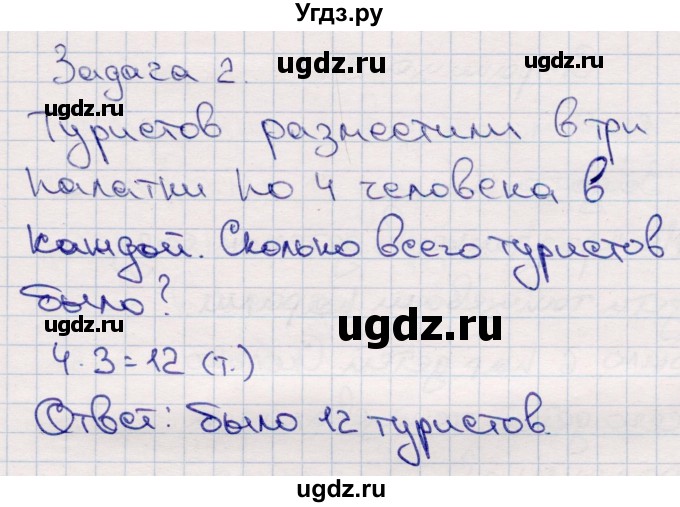 Угдз.ру
Задача 2.
ugdz.ru
ugdz.ru
ugdz.ru
Туристов разместили в три
палатки по 4 человека в
ugdz.ru
каждой. Сколько всего туристов
было?
ugdz.ru
ugdz.ru
4·3=12 (т.)
Ответ: было 12 туристов.
ugdz.ru
ugdz.ru